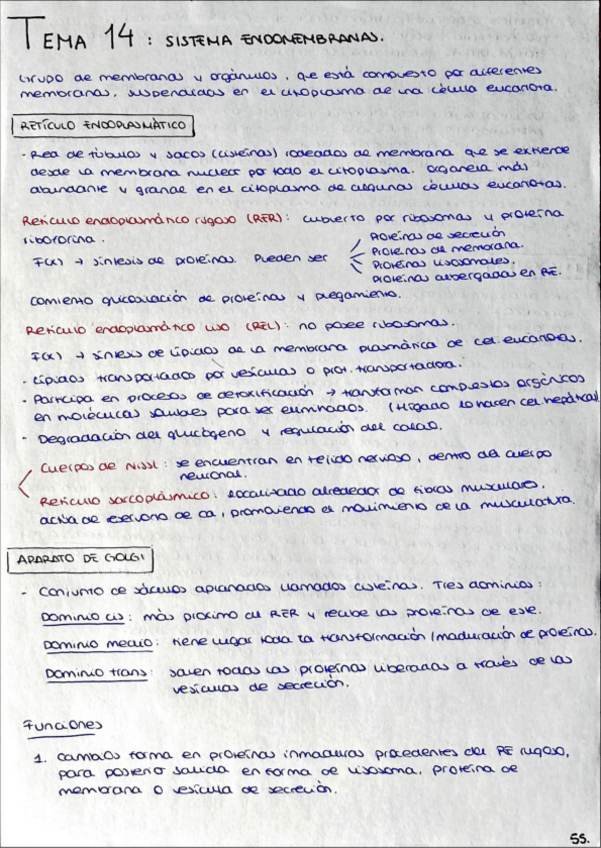 TEMA 14: SISTEMA ENDOMEMBRANAS.
Grupo de membranas y orgánulos, que está compuesto por diferentes
membranas, suspendidas en el citoplasma de una célula eucariota.
RETÍCULO ENDOPLASMÁTICO
- Red de túbulos y sacos (cisternas) rodeados de membrana que se extiende
desde la membrana nuclear por todo el citoplasma. Organela más
abundante y grande en el citoplasma de algunas células eucariotas.
Retículo endoplasmático rugoso (RER): cubierto por ribosomas y proteína
riboforina.
F(x) → síntesis de proteínas. Pueden ser
Proteínas de secreción
Proteínas de membrana.
Proteínas lisosomales.
Proteínas albergadas en RE.
Comienzo glicosilación de proteínas y plegamiento.
Retículo endoplasmático liso (REL): no posee ribosomas.
F(x) → síntesis de lípidos de la membrana plasmática de cel. eucariotas.
- Lípidos transportados por vesículas o prot. transportadora.
- Participa en procesos de detoxificación → transforman compuestos orgánicos
en moléculas solubles para ser eliminados. (Hígado lo hacen cel. hepáticas)
- Degradación del glucógeno y regulación del calcio.
Cuerpos de Nissl: se encuentran en tejido nervioso, dentro del cuerpo
neuronal.
Retículo sarcoplásmico: localizado alrededor de fibras musculares.
actúa de reservorio de ca, promoviendo el movimiento de la musculatura.
APARATO DE GOLGI
- Conjunto de sáculos aplanados llamados cisternas. Tres dominios:
Dominio cis: más próximo al RER y recibe las proteínas de este.
Dominio medio: tiene lugar toda la transformación/maduración de proteínas.
Dominio trans: salen todas las proteínas liberadas a través de las
vesículas de secreción.
Funciones
1. Cambios forma en proteínas inmaduras procedentes del RE rugoso,
para posterior salida en forma de lisosoma, proteína de
membrana o vesícula de secreción.
55.